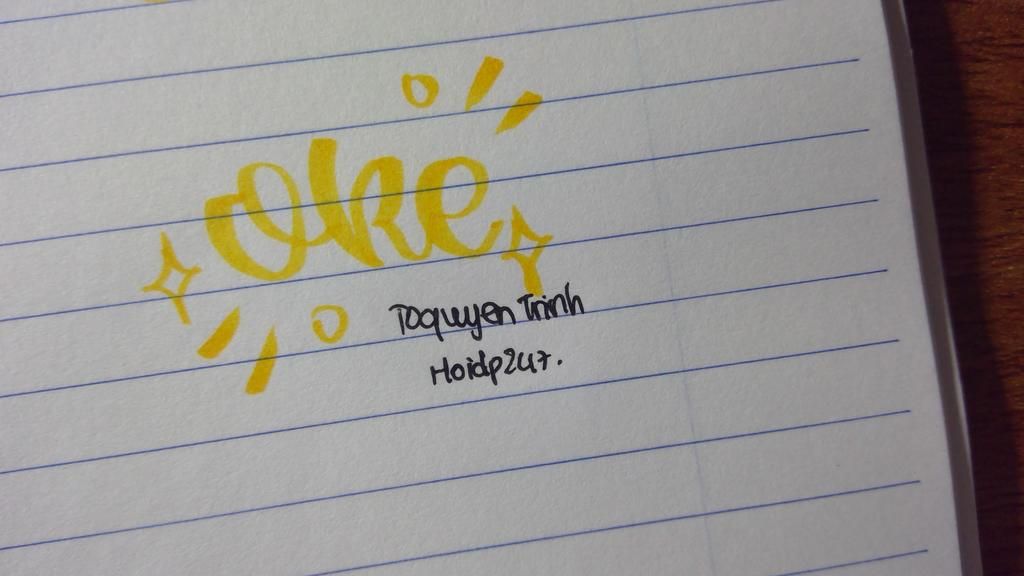 Oke
Toquyen Trinh
Hoidp247.